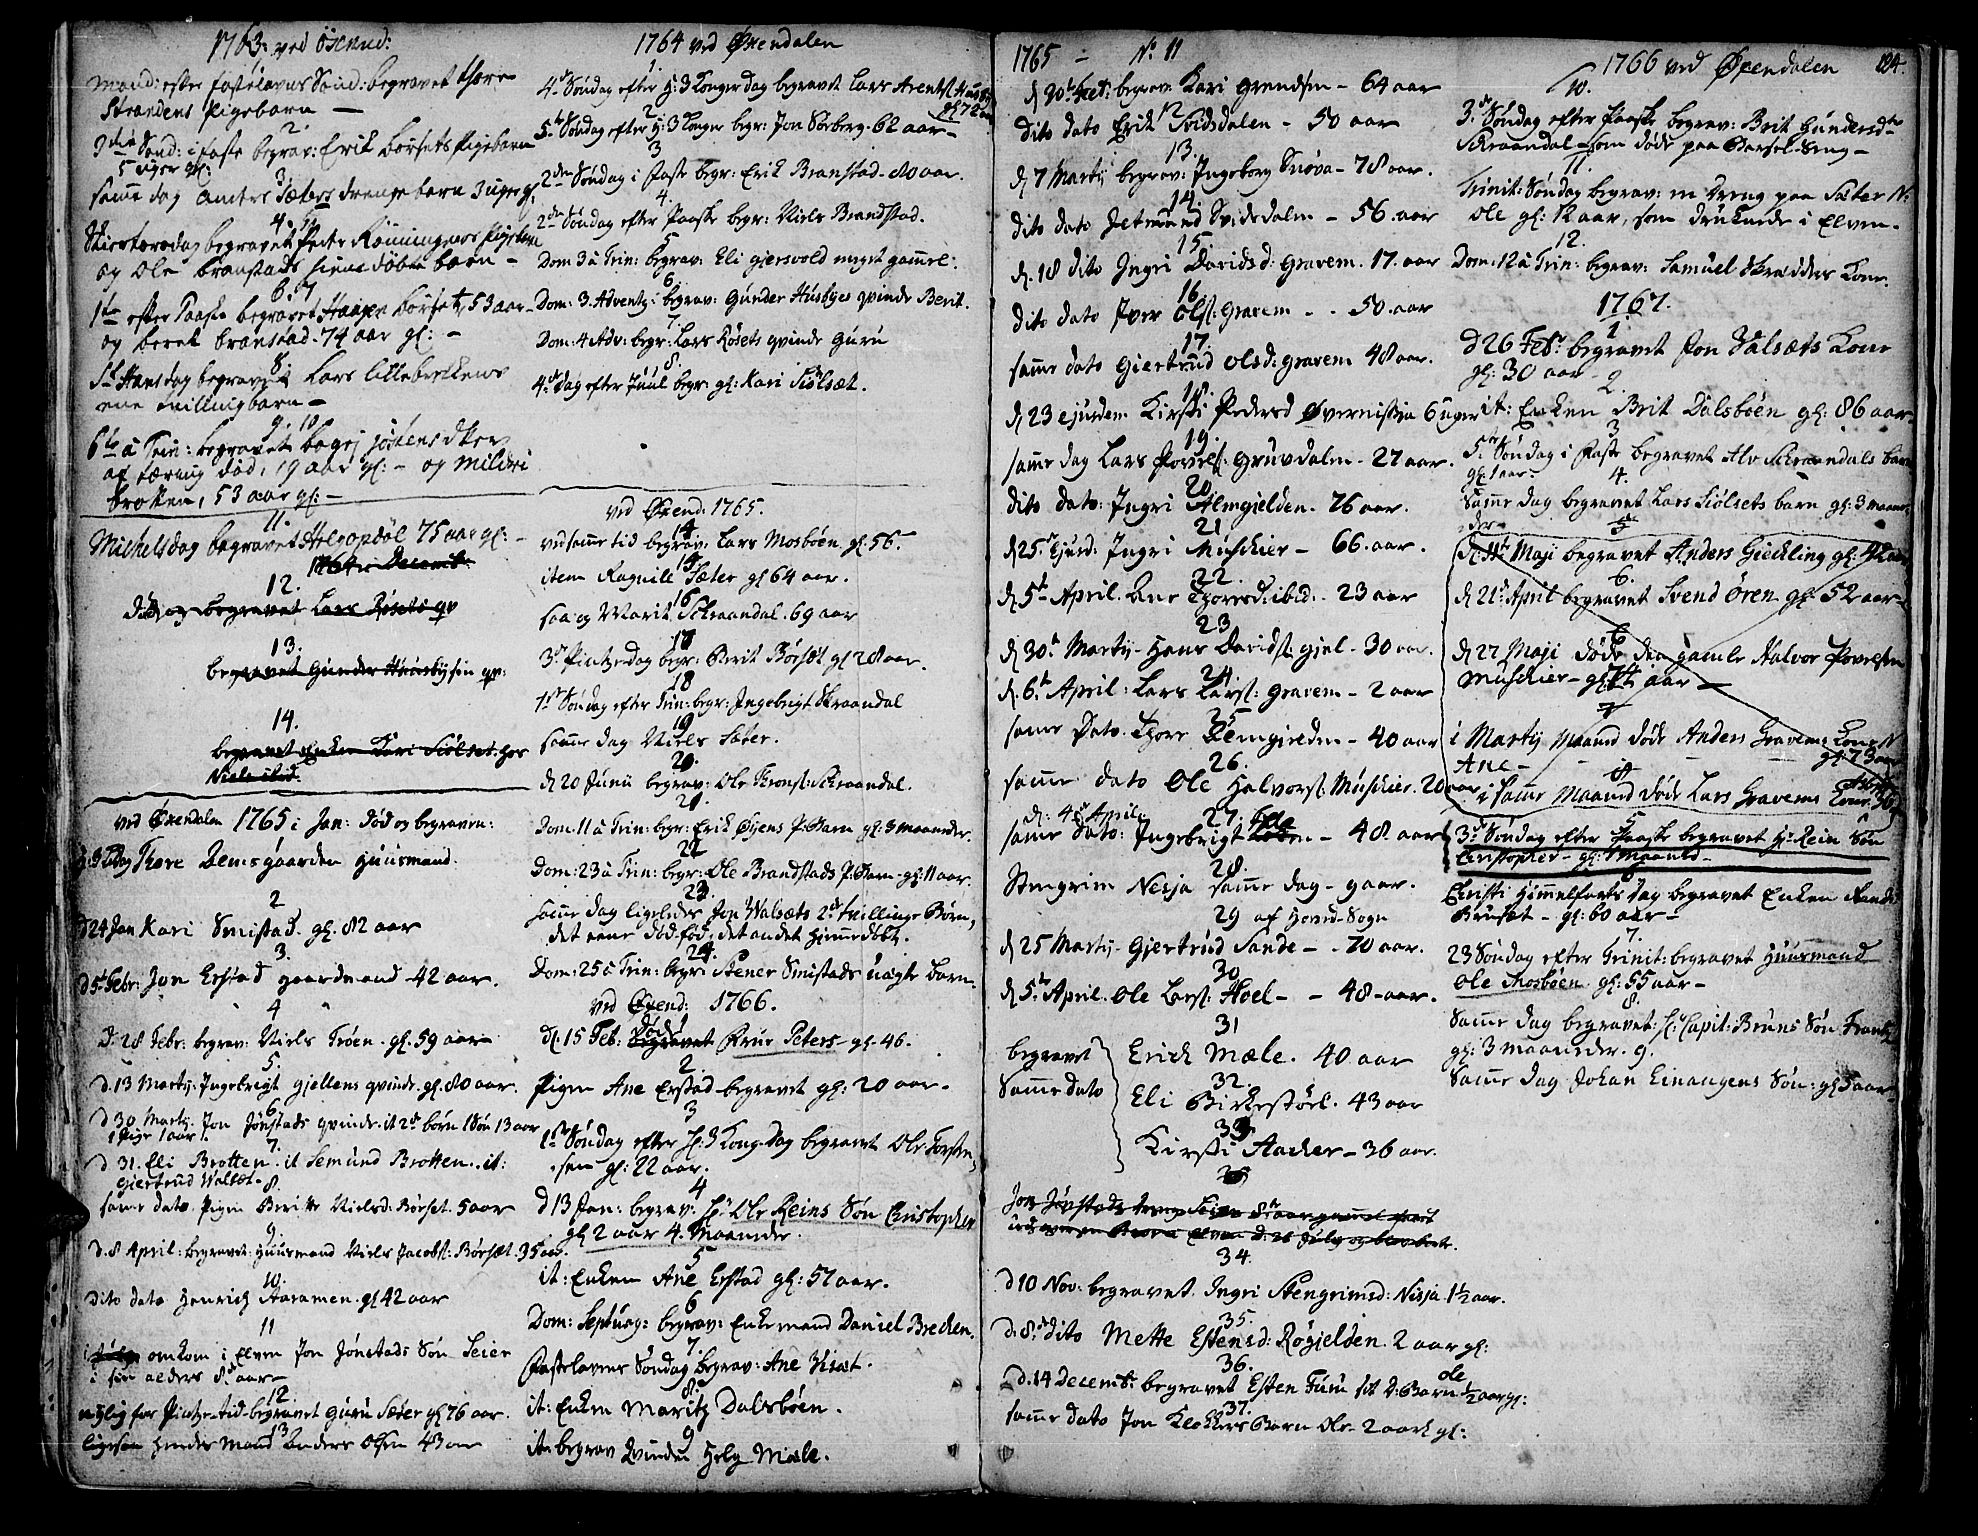 1763: ved Öxend:
Mand: efter fastelavns Sönd: begravet Thore
Strandens Pigebarn —
2.
3die Sönd: i faste begrav: Erik Börsets Pigebarn
5 uger gl:
3.
samme dag Anders Sæters drengebarn 3 uger gl.
4. 5.
Skiertorsdag begravet Peder Rönningens Pigebarn
og Ole branstads hiemedöbte barn —
6. 7
1te efter Paaske begravet Haagen börset 53 aar
og beret branstad. 74 aar gl: —
8.
St Hansdag begravet Lars lillebrekkens
ene tvillingbarn —
9. 10
6te a Trin: begravet
19 aar gl: — og Mildri
brotten, 53 aar gl: —
11.
Michelsdag begravet Helg opdöl 75 aar gl: —
1764 Decemb:
12.
död og begravet Lars Röset qv
13.
begravet Gunder Huusby sin qv:
14.
begravet Enken Kari Siölset hos
Niels ibid.
ved Öxendalen 1765 i Jan: död og begraven:
Thore Dems gaarden huusmand.
2
d 24 Jan Kari Smistad. gl. 82 aar
3.
d 5t Febr: Jon Erstad gaardmand 42 aar.
4
d. 28 Febr: begrav: Niels Tröen. gl. 59 aar
5.
d. 13 Martj. Ingebrigt Gjellens qvinde. gl. 80 aar.
6.
d 30 Martj. Jon Jönstads qvinde. it 2de börn 1 Sön 13 aar
1 Pige 1 aar.
7.
d 31. Eli Brotten. it Semund Brotten. it:
Giertrud Walset.
8.
samme dato Pigen Beritte Nielsd: Börset. 5 aar
9.
d. 8 April: begravet: huusmand Niels Jacobs: Börset. 35 aar.
10.
dito dato Henrich Aaramen. gl 42 aar
11
omkom i Elven Jon Jönstads Sön Seier
i sin alders 8de aar —
12.
nylig for Pintze-tid begravet Guru Sæter gl 76 aar.
13
ligesom hendes mand Anders Olsen 43 aar
1764 ved Öxendalen
1.
4de Söndag efter H: 3 Konger dag begravet Lars Arentz Huusby
gl 72 aar
2
5te Söndag efter H: 3 Konger begr: Jon Sörberg. 62 aar —
3
2den Söndag i Faste begr: Erik Branstad. 80 aar.
4.
2den Söndag efter Paaske begr: Niels Brandstad.
5
Dom 3 a Trin: begrav: Eli gjersvold meget gammel:
6
Dom: 3. Adventz: begrav: Gunder Husbyes qvinde Berit.
7.
Dom: 4 Adv: begr: Lars Röset qvinde Guru
8.
4de dag efter Juul begr: gl: Kari Siölset.
ved Öxend. 1765.
14
ved samme tid begrav: Lars Mosböen gl. 56.
15
item Ragnild Sæter gl 64 aar.
16
saa og Marit Schraandal. 69 aar
17
3de Pintzedag begr: Berit Börset gl 28 aar.
18
1te Söndag efter Trin: begr: Ingebrigt Skraandal
19
samme dag Niels Sæter.
20.
d 20 Junii begrav: Ole Skraandal.
21.
Dom: 11 a Trin: begr: Erik Öyens P: Barn gl: 3 maaneder.
22
Dom: 23 a Trin: begr: Ole Brandstads P: Barn — gl: 11 aar.
23.
samme dag ligeledes Jon Walsæts 2de tvillinge Börn,
det eene död-föd, det andet hiemmedöbt.
24.
Dom: 25 a Trin: begr: Stener Smistads uægte barn.
ved Öxend: 1766.
1
dl. 15 Feb: begravet döde Peters gl 46.
2.
Pigen Ane Erstad begravet gl: 20 aar.
3
1te Söndag efter H. 3 Kong. dag begravet Ole Torsten,
sen gl: 22 aar.
4
d 13 Jan: begrav: Hr Ole Reins Sön Christopher
gl 2 aar 4. Maaneder.
5
it: Enken Ane Erstad gl: 57 aar.
6
Dom: Septuag: begrav: Enkemand Daniel Brecken.
7.
Fastelavens Söndag begrav: Ane Viset.
8.
it: Enken Maritz Dalsböen.
9
it: begrav Qvinden Helg Mæle.
1765 — No 11
d 20t Feb: begrav Kari Grendsen — 64 aar
12
dito dato Erik Svidsdalen — 50 aar
13.
d 7 Martij begrav: Ingeborg Snöva — 78 aar.
14.
dito dato Jetmund Svidsdalen — 56. aar
15.
d. 18 dito Ingri Davidsd: Gravem. 17. aar
16.
dito dato Iver Ols: Gravem — . 50. aar
17.
samme dato Giertrud Olsd: Gravem 48 aar.
18.
d 23 ejusdem Kirsti Pedersd Overnistua 6 uger
19.
samme dag Lars Povels: Gruvdalen — 27 aar.
20.
dito dato: Ingri Almgjelden. 76 aar.
21.
d 25de Ejusd: Ingri Muschier — 66. aar.
22.
d 5te April. Ane Thoresd: ibid. . 23 aar
23
d 30te Martij. Hans Davids: Gjel — 30 aar.
24.
d. 6te April: Lars Lars: Gravem — 2 aar
25
samme dato. Thore — 40 aar
26.
samme dato Ole Halvors: Muschier. 20 aar
d. 4de April
27.
samme dato: Ingebrigt — 48 aar
28.
Stengrim Nesja samme dag — 9 aar.
29 af Hoved-Sogn
d 25 Martij. Gjertrud Sande — . 70 aar.
30
d 5te April. Ole Lars: Hoel — — 48 — aar.
31
begravet
samme dato
Erich Mæle. 40 aar
32.
Eli Birkestöel. 43 aar
33
Kirsti Aacher — 36 aar.
34.
d 10 Nov: begravet Ingri Stengrimsd: Nesja 1 1/2 aar.
35.
d. 8de dito Mette Estensd: Rögjelden. 2 aar gl:
36.
d. 14 Decembr: begravet Esten Furu sit D: Barn Ole 1/2 aar gl:
37.
samme dato Jon Klokkers Barn Ole. 2 aar gl:
1766 ved Öxendalen 124.
10.
3de Söndag efter Paaske begrav: Brit Gundersd
Schraandal — som döde paa Barsel-Seng —
11.
Trinit: Söndag begrav: en dreng paa Sæter N:
Ole gl: 12 aar, som druknede i Elven.
12.
Dom: 12 a Trin: begrav: Samuel Skredders Kone.
1767.
1.
d 26 Febr begravet Jon Valsæts Kone
gl: 30 aar —
2.
it: Enken Brit Dalsböen gl: 86 aar
3
5te Söndag i Faste begravet Alv Schraandals barn
gl 1 aar.
4.
Samme dag begravet Lars Siölsets barn gl: 3 maane-
der.
5
d. 11te Maji begravet Anders Gickling gl: 42 aar
6.
d 21de April begravet Svend Ören gl: 52 aar —
6
d 27 Maji döde den gamle Halvor Povelsen
Muschier — gl: aar —
7
i Martij Maaned döde Anders Gravems Kone N
Ane — gl 73 aar
8
i samme Maaned döde Lars Gravems Kone.
5
3de Söndag efter Paaske begravet Hr Rein Sön
Christopher — gl: 1 Maaned —
6
Christi Himmelfarts dag begravet Enken Rande
Bruset — gl: 60 aar —
7.
23 Söndag efter Trinit: begravet Huusmand
Ole Mosböen gl: 55 aar —
8.
Samme dag begravet Hr Capit: Bruns Sön Frantz
gl: 3 maaneder.
9.
Samme dag Johan Einangens Sön: gl: 5 aar